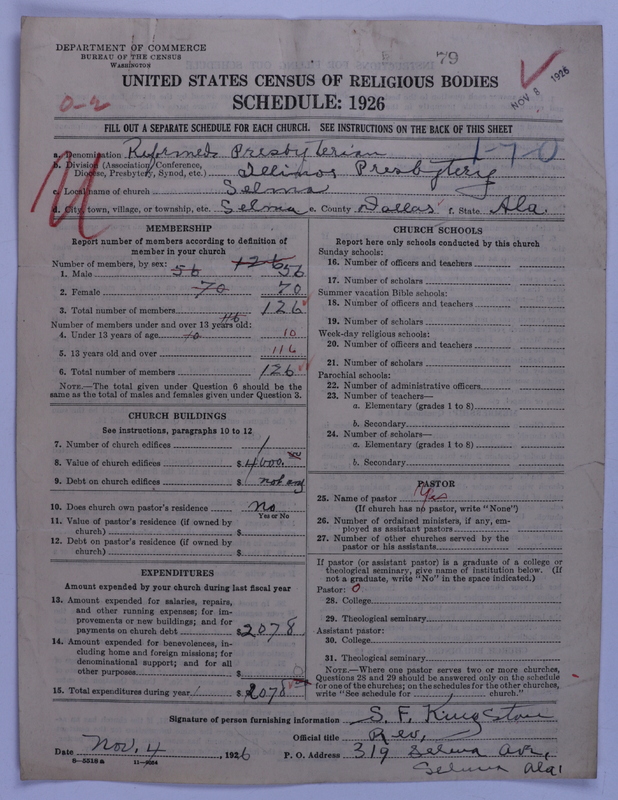 79
DEPARTMENT OF COMMERCE
BUREAU OF THE CENSUS
WASHINGTON
UNITED STATES CENSUS OF RELIGIOUS BODIES
NOV 8 1926
0-2
SCHEDULE: 1926
FILL OUT A SEPARATE SCHEDULE FOR EACH CHURCH. SEE INSTRUCTIONS ON THE BACK OF THIS SHEET
1-70
a. Denomination Reformed Presbyterian
b. Division (Association, Conference,
Diocese, Presbytery, Synod, etc.) Illinois Presbytery
c. Local name of church Selma
d. City, town, village, or township, etc. Selma e. County Dallas f. State Ala
MEMBERSHIP
Report number of members according to definition of
member in your church
Number of members, by sex: 126
1. Male 56 56
2. Female 70 70
3. Total number of members 126
116
Number of members under and over 13 years old:
4. Under 13 years of age 10 10
5. 13 years old and over 116
6. Total number of members 126
NOTE.—The total given under Question 6 should be the
same as the total of males and females given under Question 3.
CHURCH BUILDINGS
See instructions, paragraphs 10 to 12
7. Number of church edifices 1
8. Value of church edifices $ 4000.00
9. Debt on church edifices $ not any
10. Does church own pastor's residence No
Yes or No
11. Value of pastor's residence (if owned by
church) $
12. Debt on pastor's residence (if owned by
church) $
EXPENDITURES
Amount expended by your church during last fiscal year
13. Amount expended for salaries, repairs,
and other running expenses; for im-
provements or new buildings; and for
payments on church debt $ 2078
14. Amount expended for benevolences, in-
cluding home and foreign missions; for
denominational support; and for all
other purposes $ 0
15. Total expenditures during year $ 2078
CHURCH SCHOOLS
Report here only schools conducted by this church
Sunday schools:
16. Number of officers and teachers
17. Number of scholars
Summer vacation Bible schools:
18. Number of officers and teachers
19. Number of scholars
Week-day religious schools:
20. Number of officers and teachers
21. Number of scholars
Parochial schools:
22. Number of administrative officers
23. Number of teachers—
a. Elementary (grades 1 to 8)
b. Secondary
24. Number of scholars—
a. Elementary (grades 1 to 8)
b. Secondary
PASTOR
25. Name of pastor Yes
(If church has no pastor, write "None")
26. Number of ordained ministers, if any, em-
ployed as assistant pastors
27. Number of other churches served by the
pastor or his assistants
If pastor (or assistant pastor) is a graduate of a college or
theological seminary, give name of institution below. (If
not a graduate, write "No" in the space indicated.)
Pastor: 0
28. College
29. Theological seminary
Assistant pastor:
30. College
31. Theological seminary
NOTE.—Where one pastor serves two or more churches,
Questions 28 and 29 should be answered only on the schedule
for one of the churches; on the schedules for the other churches,
write "See schedule for church."
Signature of person furnishing information S. F. Kingston
Official title Rev.
Date Nov. 4, 1926 P. O. Address 319 Selma Ave,
Selma Ala
8—5318a 11—9064